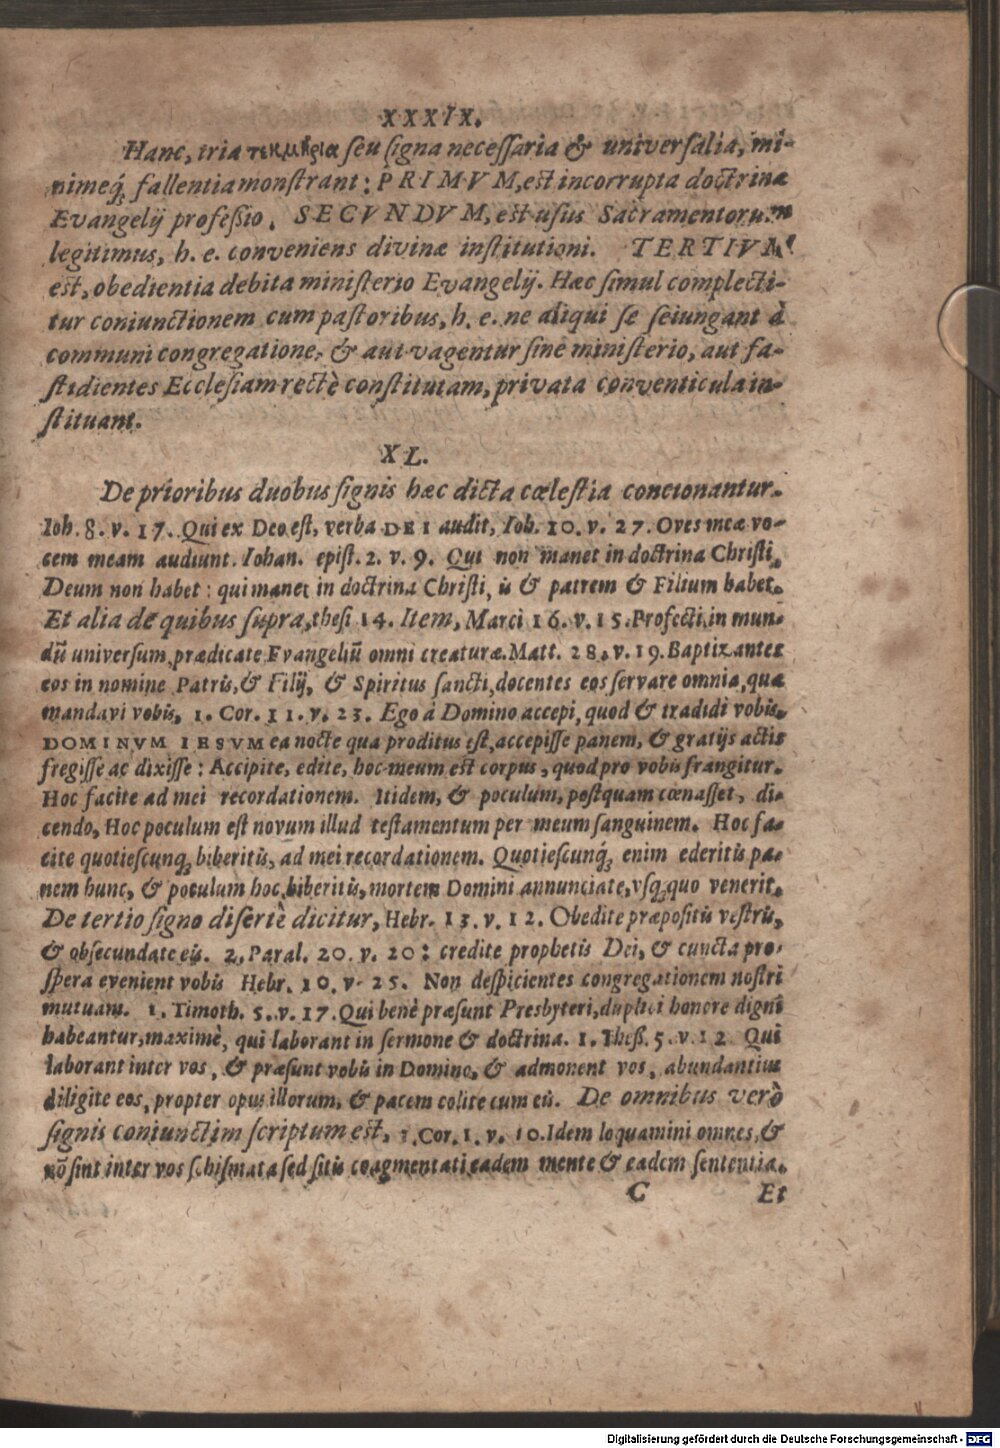 XXXIX.
Hanc, tria τεκμήρια seu signa necessaria & universalia, mi-
nimeq́; fallentia monstrant: PRIMVM, est incorrupta doctrinæ
Evangelij professio. SECVNDVM, est usus Sacramentorum
legitimus, h. e. conveniens divinæ institutioni. TERTIVM
est, obedientia debita ministerio Evangelij. Hæc simul complecti-
tur coniunctionem cum pastoribus, h. e. ne aliqui se seiungant à
communi congregatione, & aut vagentur sine ministerio, aut fa-
stidientes Ecclesiam rectè constitutam, privata conventicula in-
stituant.
XL.
De prioribus duobus signis hæc dicta cœlestia concionantur.
Ioh. 8. v. 17. Qui ex Deo est, verba DEI audit, Ioh. 10. v. 27. Oves meæ vo-
cem meam audiunt. Iohan. epist. 2. v. 9. Qui non manet in doctrina Christi,
Deum non habet: qui manet in doctrina Christi, is & patrem & Filium habet.
Et alia de quibus supra, thesi 14. Item, Marci 16. v. 15. Profecti in mun-
dū universum, prædicate Evangeliū omni creaturæ. Matt. 28. v. 19. Baptizantes
eos in nomine Patris, & Filij, & Spiritus sancti, docentes eos servare omnia, quæ
mandavi vobis, 1. Cor. 11. v. 23. Ego á Domino accepi, quod & tradidi vobis.
DOMINVM IESVM ea nocte qua proditus est, accepisse panem, & gratijs actis
fregisse ac dixisse: Accipite, edite, hoc meum est corpus, quod pro vobis frangitur.
Hoc facite ad mei recordationem. Itidem, & poculum, postquam cœnasset, di-
cendo, Hoc poculum est novum illud testamentum per meum sanguinem. Hoc fa-
cite quotiescunq; biberitis, ad mei recordationem. Quotiescunq́; enim ederitis pa-
nem hunc, & poculum hoc biberitis, mortem Domini annunciate, vsq; quo venerit.
De tertio signo disertè dicitur, Hebr. 13. v. 12. Obedite præpositis vestris,
& obsecundate eis. 2. Paral. 20. v. 20: credite prophetis Dei, & cuncta pro-
spera evenient vobis Hebr. 10. v. 25. Non despicientes congregationem nostri
mutuam. 1. Timoth. 5. v. 17. Qui benè præsunt Presbyteri, duplici honore digni
habeantur, maximè, qui laborant in sermone & doctrina. 1. Thess. 5. v. 12 Qui
laborant inter vos, & præsunt vobis in Domino, & admonent vos, abundantius
diligite eos, propter opus illorum, & pacem colite cum eis. De omnibus verò
signis coniunctim scriptum est, 1. Cor. 1. v. 10. Idem loquamini omnes, &
nō sint inter vos schismata sed sitis coagmentati eadem mente & eadem sententia.
C Et
Digitalisierung gefördert durch die Deutsche Forschungsgemeinschaft - DFG